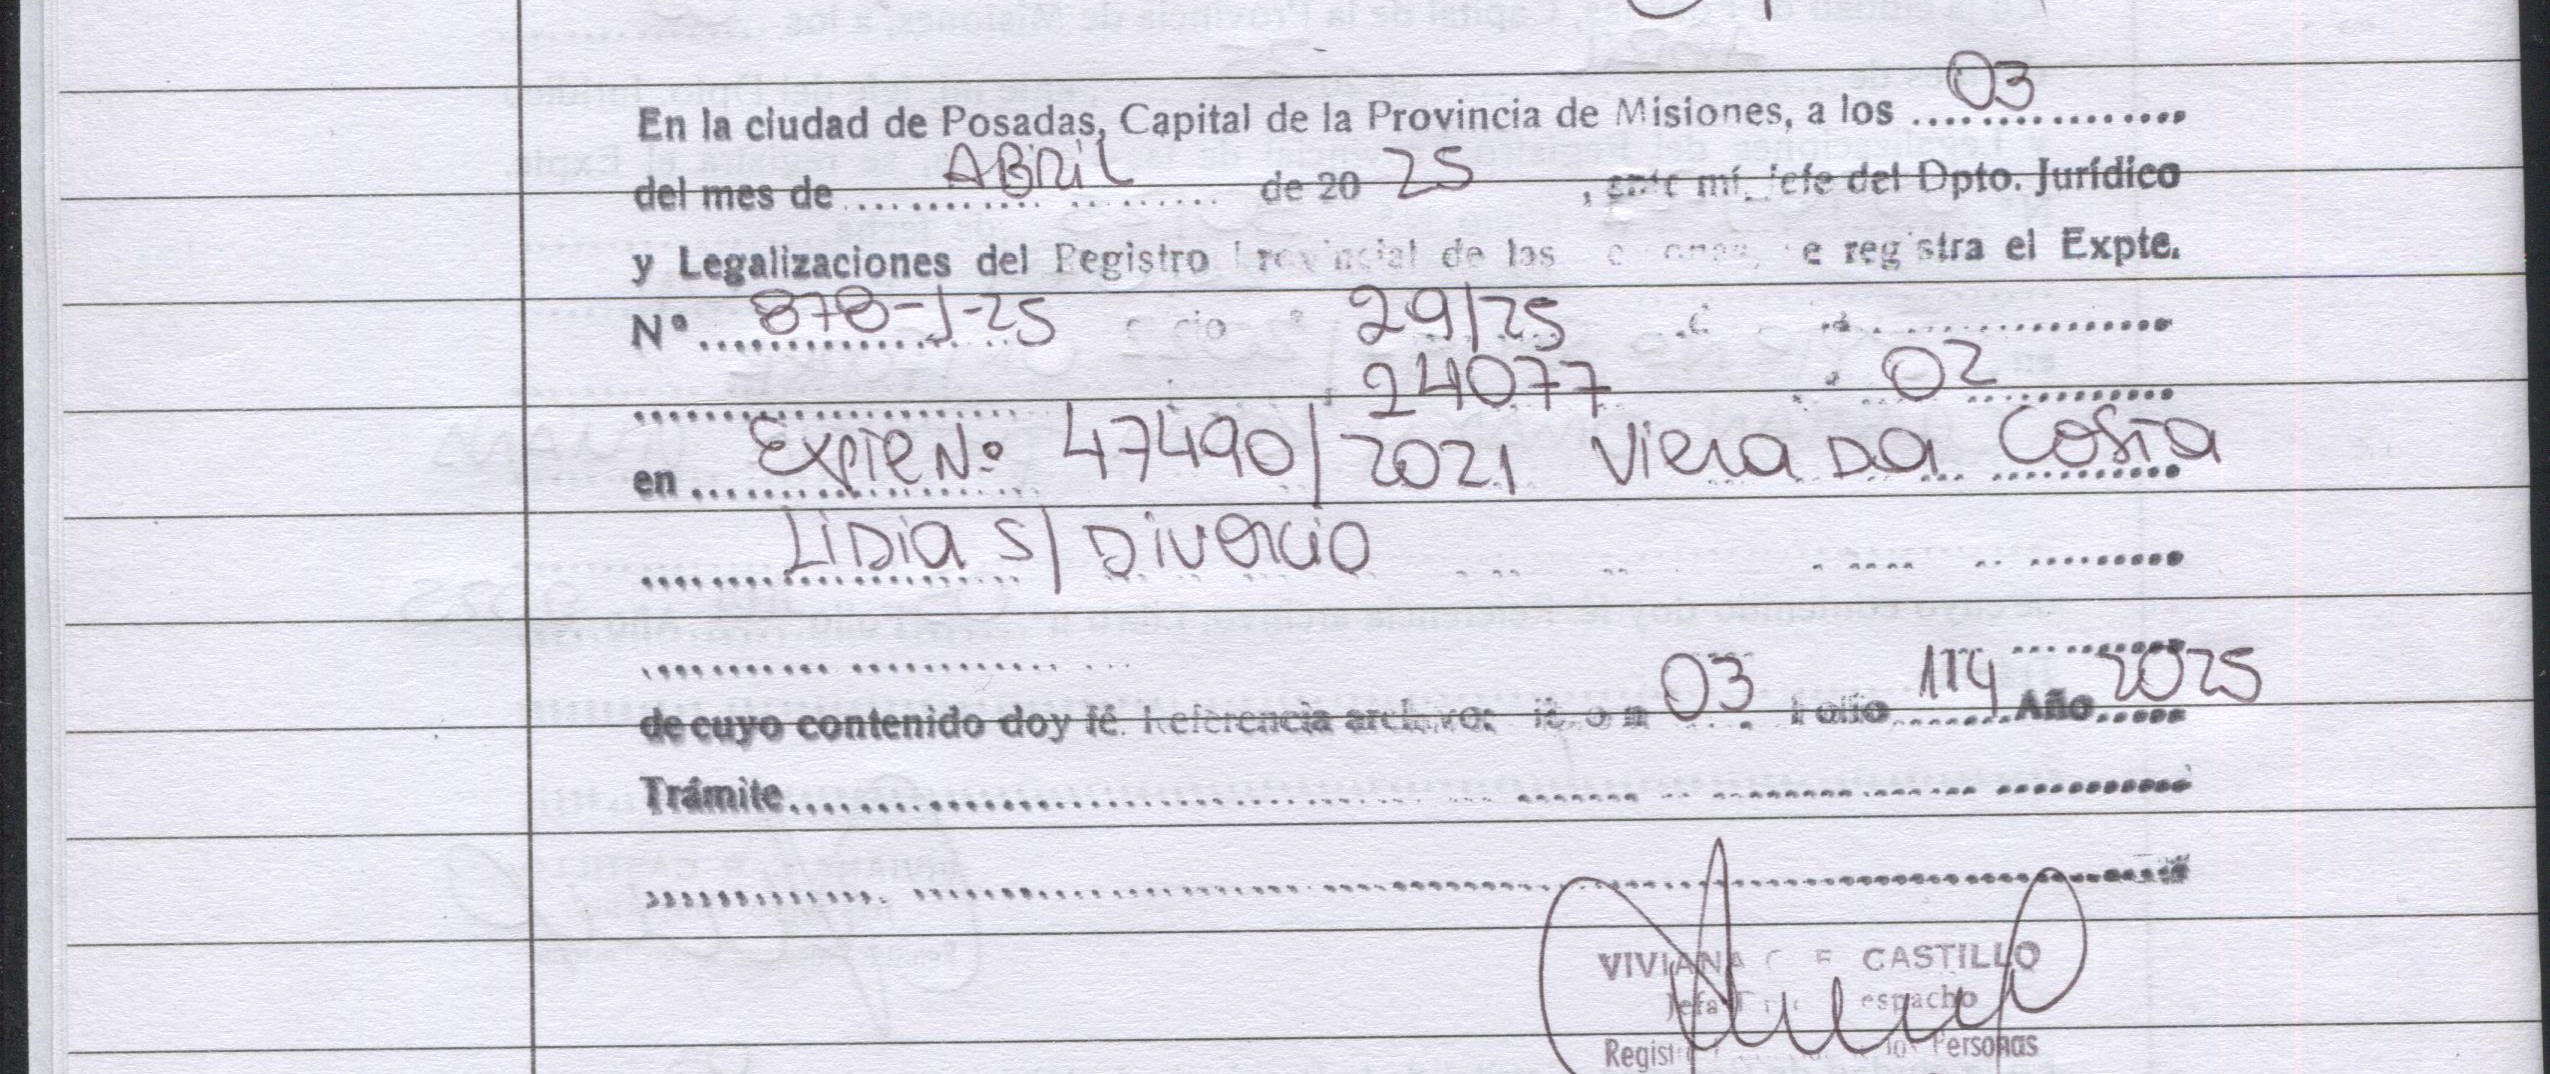 En la ciudad de Posadas, Capital de la Provincia de Misiones, a los 03
del mes de ABRIL de 20 25, ante mí, Jefe del Dpto. Jurídico
y Legalizaciones del Registro Provincial de las se registra el Expte.
Nº 878-J-25 29/25
24077 02
en Expte Nº 47490/2021 Viera Da Costa
Lidia s/ Divorcio
de cuyo contenido doy fé. Referencia archivo: 03 Folio 114 Año 2025
Trámite
VIVIANA CASTILLO
Jefa
Personas